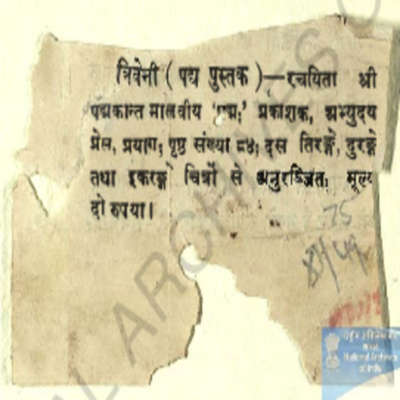 त्रिवेनी ( पद्य पुस्तक )—रचयिता श्री
पद्मकान्त मालवीय 'पद्म;' प्रकाशक, अभ्युदय
प्रेस, प्रयाग; पृष्ठ संख्या ८४; दस तिरङ्गे, दुरङ्गे
तथा इकरङ्गे चित्रों से अनुरञ्जित; मूल्य
दो रुपया।
75
National Archives
of India